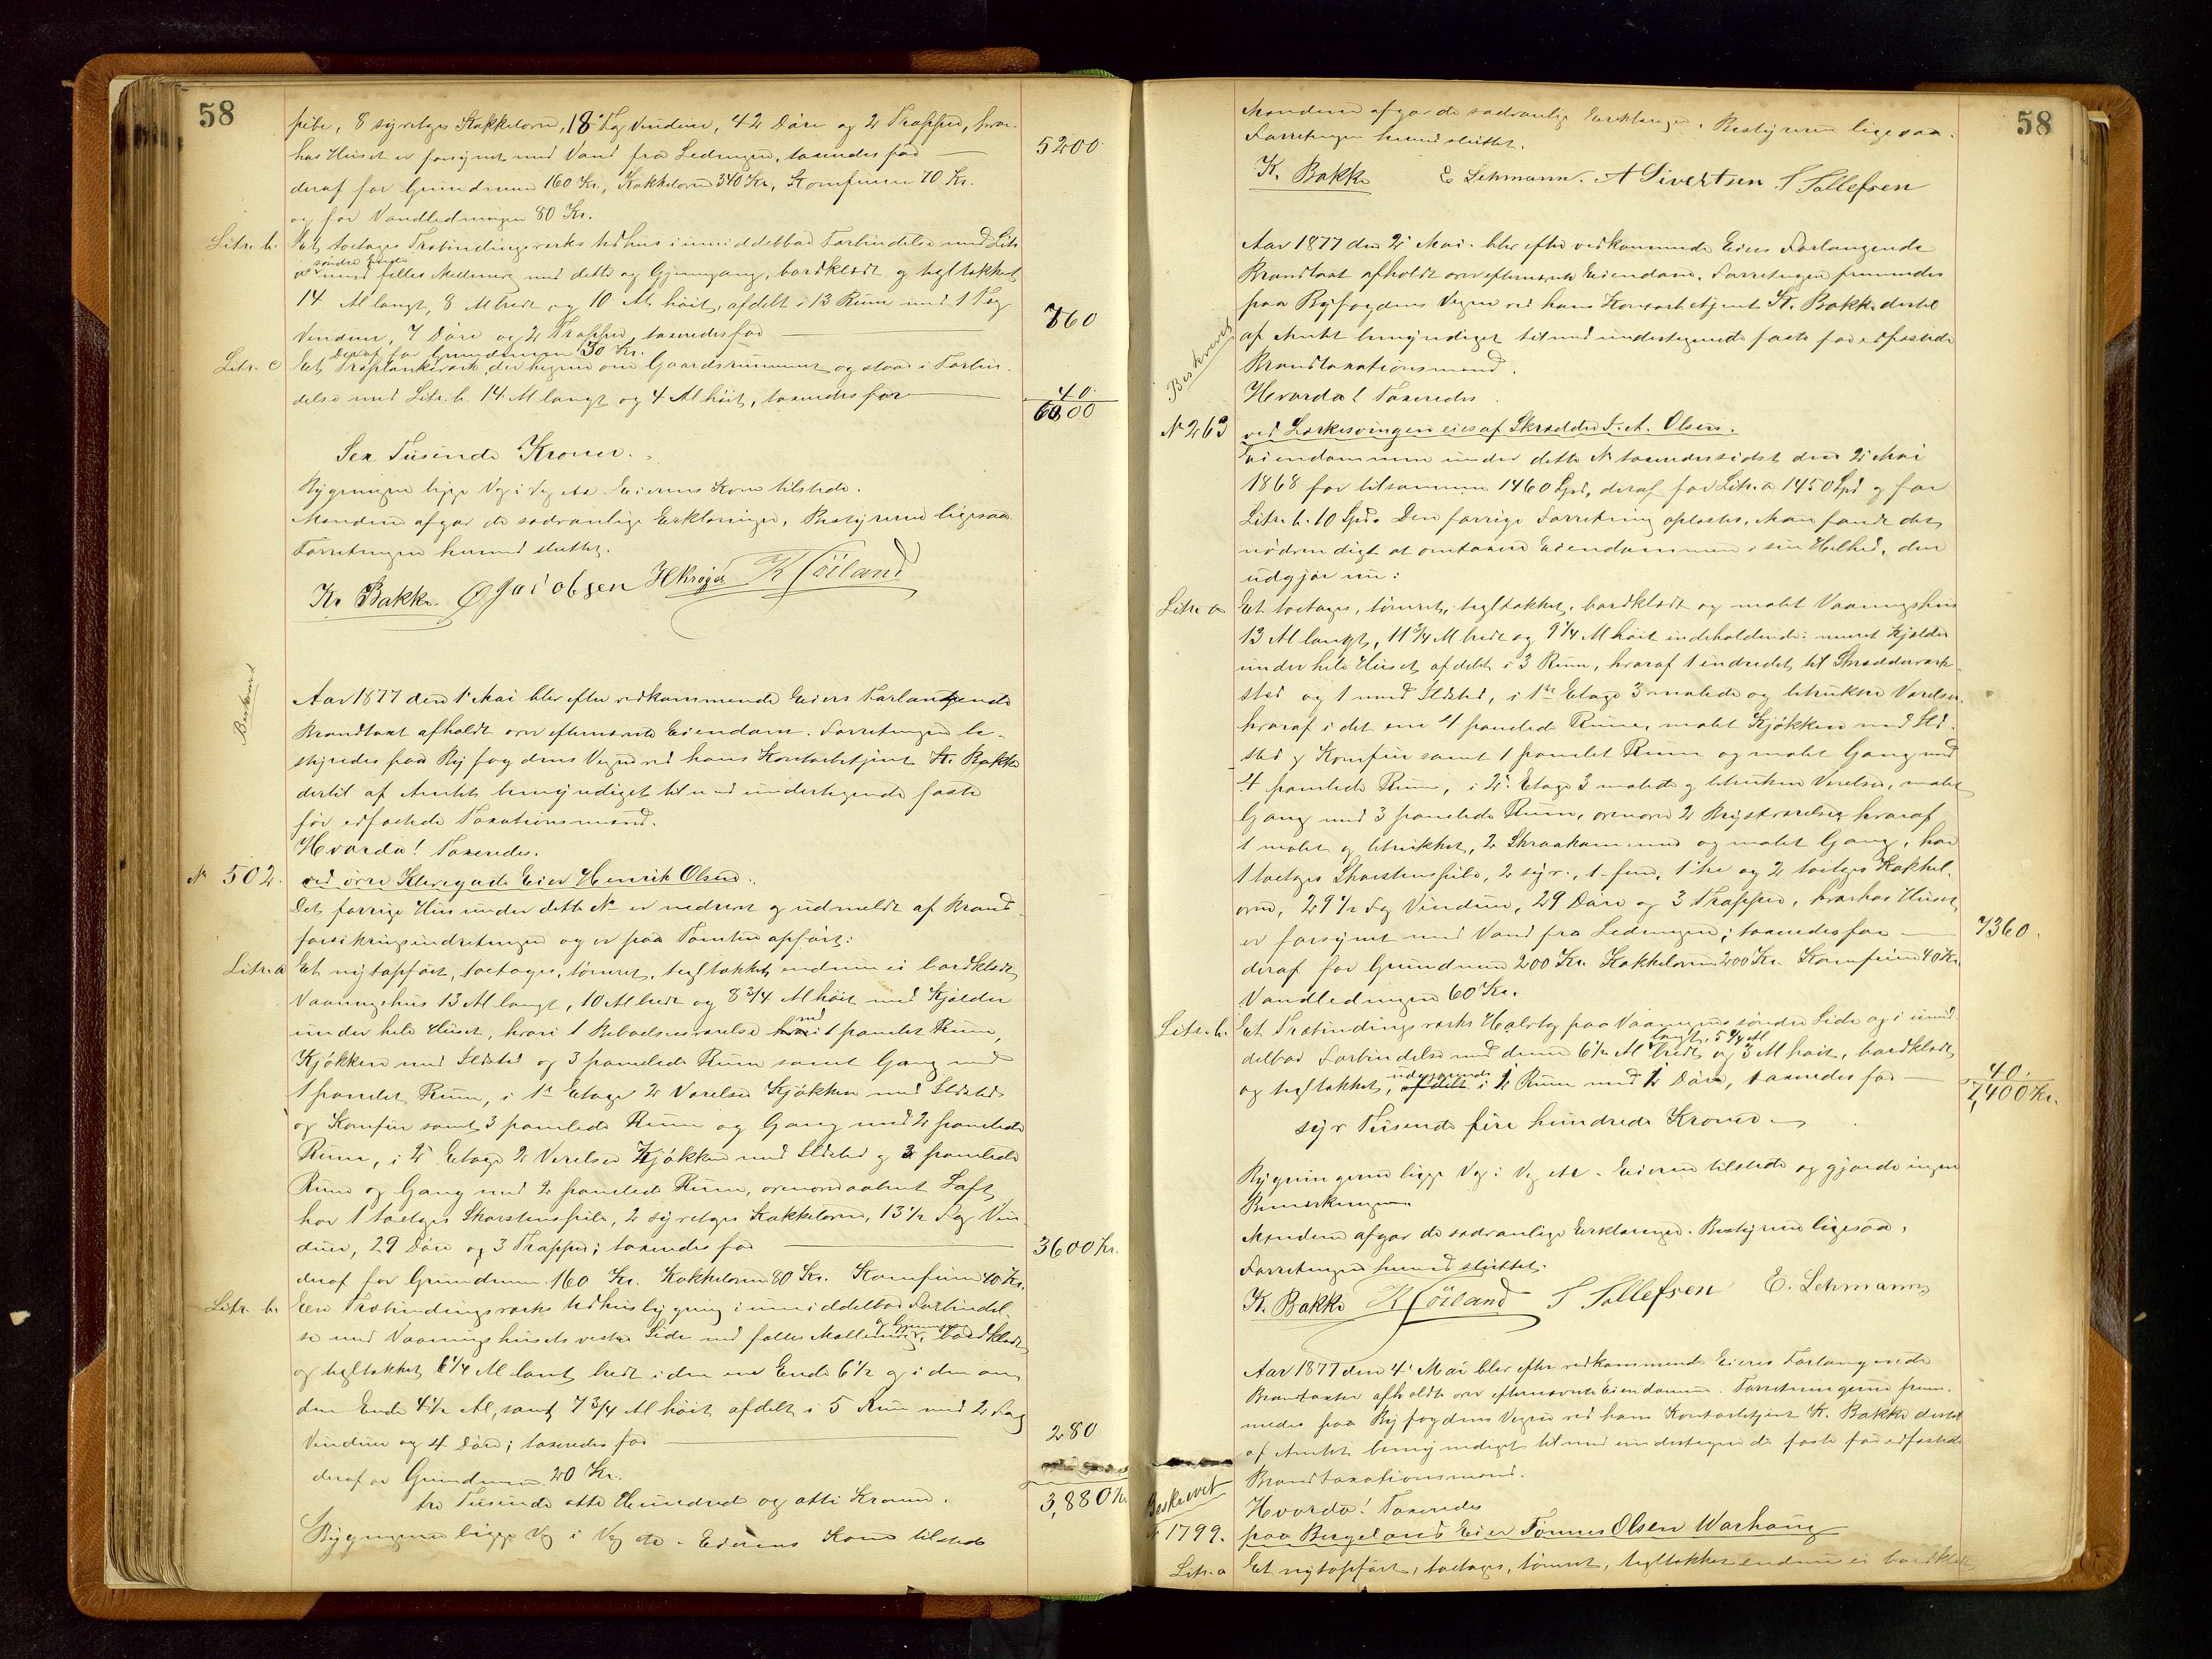 58
pibe, 8 syvetages Kakkelovne, 18 Fag Vinduer, 42 Døre og 2 Trapper, hvor-
hos Huset er forsynet med Vand fra Ledningen, taxeredes for — 5200
deraf for Grundmuren 160 Kr., Kakkelovne 340 Kr., Komfuren 70 Kr.
og for Vandledningen 80 Kr.
Litr. b. Et toetages Træbindingsværks Udhus i umiddelbar Forbindelse med Litr
a søndre Ende med fælles Mellemvæg med dette og Gjennemgang, bordklædt og tegltækket
14 Al langt, 8 Al bredt og 10 Al høit, afdelt i 13 Rum med 1 Fag
Vinduer, 7 Døre og 2 Trapper, taxeredes for — 760
deraf for Grundmuren 130 Kr.
Litr. c Et Træplankeværk der hegner om Gaardsrummet og staar i Forbin-
delse med Litr. b. 14 Al langt og 4 Al høit, taxeredes for — 40.
6000
Sex Tusinde Kroner.
Bygningen ligge Veg i Veg etc. Eierens Kone tilstede.
Mændene afgav de sædvanlige Erklæringer, Bestyreren ligesaa
Forretningen hermed sluttet.
Kr. Bakke. O Jacobsen H Krøger K Höiland
Beskrevet
Aar 1877 den 1 Mai blev efter vedkommende Eiers Forlangende
Brandtaxt afholdt over efternævnte Eiendom. Forretningen be-
styredes paa Byfogdens Vegne ved hans Kontorbetjent K. Bakke
dertil af Amtet bemyndiget tilmed undertegnede faste
før edfæstede Taxationsmænd.
Hvorda! Taxeredes.
No 502. ved øvre Klevegade Eier Henrik Olsen.
Det forrige Hus under dette No er nedrevet og udmeldt af Brand-
forsikringsindretningen og er paa Tomten opført:
Litr. a Et nyt opført, toetages, tømret, tegltækket, endnu ei bordklædt
Vaaningshus 13 Al langt, 10 Al bredt og 8 3/4 Al høit med Kjælder
under hele Huset, hvori 1 Beboelsesværelse med 1 panelet Rum,
Kjøkken med Ildsted og 3 panelede Rum samt Gang med
1 panelet Rum, i 1ste Etage 2 Værelser Kjøkken med Ildsted
og Komfur samt 3 panelede Rum og Gang med 2 panelede
Rum, i 2 Etage 2 Værelser Kjøkken med Ildsted og 3 panelede
Rum og Gang med 2 panelede Rum, ovenover aabent Loft,
har 1 toetages Skorstenspibe, 2 syvetages Kakkelovne, 13 1/2 Fag Vin-
duer, 29 Døre og 3 Trapper; taxeredes for — 3600 Kr.
deraf for Grundmuren 160 Kr. Kakkelovne 80 Kr. Komfuren 40 Kr.
Litr. b. En Træbindingsværks Udhusbygning i umiddelbar Forbindel-
se med Vaaningshusets vestre Side med fælles Mellemvæg og Gjennemgang, bordklædt
og tegltækket 6 1/4 Al langt bredt i den ene Ende 6 1/2 og i den an-
den Ende 4 1/2 Al, samt 7 3/4 Al høit afdelt i 5 Rum med 2 Fag
Vinduer og 4 Døre; taxeredes for — 280
deraf for Grundmuren 20 Kr.
tre Tusinde otte Hundrede og otti Kroner. 3,880 Kr
Bygningerne ligge Veg i Veg etc. Eierens Kone tilstede
58
Mændene afgav de sædvanlige Erklæringer. Bestyreren ligesaa.
Forretningen hermed sluttet.
K. Bakke E Lehmann. A Sivertsen S Tollefsen
Beskrevet
Aar 1877 den 2 Mai blev efter vedkommende Eiers Forlangende
Brandtaxt afholdt over efternævnte Eiendom. Forretningen fremmedes
paa Byfogdens Vegne ved hans Kontorbetjent K. Bakke dertil
af Amtet bemyndiget tilmed undertegnede faste før edfæstede
Brandtaxationsmænd.
Hvorda! Taxeredes
No 263 ved Lærkesvingen eies af Skrædder S. A. Olsen.
Eiendommen under dette No taxeredes sidst den 2 Mai
1868 for tilsammen 1460 Spd., deraf for Litr. a 1450 Spd og for
Litr. b. 10 Spd. Den forrige Forretning oplæstes. Man fandt det
nødvendigt at omtaxere Eiendommen i sin Helhed, den
udgjør nu:
Litr. a Et toetages, tømret, tegltækket, bordklædt og malet Vaaningshus
13 Al langt, 11 3/4 Al bredt og 9 1/4 Al høit indeholdende: muret Kjælder
under hele Huset afdelt i 3 Rum, hvoraf 1 indredet til Skrædderværk-
sted og 1 med Ildsted, i 1ste Etage 3 malede og betrukne Værelser
hvoraf i det ene 4 panelede Rum, malet Kjøkken med Ild-
sted og Komfur samt 1 panelet Rum og malet Gang med
4 panelede Rum, i 2 Etage 3 malede og betrukne Værelser, malet
Gang med 3 panelede Rum, ovenover 2 Kvistværelser hvoraf
1 malet og betrukket, 2 Skraakammere og malet Gang, har
1 toetages Skorstenspibe, 2 syv-, 1 fem, 1 tre og 2 toetages Kakkel-
ovne, 29 1/2 Fag Vinduer, 29 Døre og 3 Trapper, hvorhos Huset
er forsynet med Vand fra Ledningen; taxeredes for — 7360.
deraf for Grundmuren 200 Kr. Kakkelovne 200 Kr. Komfuren 40 Kr.
Vandledningen 60 Kr.
Litr. b. Et Træbindingsværks Halvtag paa Vaaningens søndre Side og i umid-
delbar Forbindelse med denne 6 1/2 Al langt, 5 1/4 Al bredt og 3 Al høit, bordklædt
og tegltækket, udgjørende 1 Rum med 1 Dør, taxeredes for — 40.
7,400 Kr.
syv Tusende fire hundrede Kroner
Bygningerne ligge Veg i Veg etc. Eieren tilstede og gjorde ingen
Bemerkninger.
Mændene afgav de sædvanlige Erklæringer. Bestyreren ligesaa.
Forretningen hermed sluttet.
K. Bakke K Höiland S Tollefsen E. Lehmann
Aar 1877 den 4 Mai blev efter vedkommende Eieres Forlangende
Brandtaxter afholdt over efternævnte Eiendomme. Forretningerne frem-
medes paa Byfogdens Vegne ved hans Kontorbetjent K. Bakke dertil
af Amtet bemyndiget tilmed undertegnede faste før edfæstede
Brandtaxationsmænd.
Beskrevet
Hvorda! Taxeredes
No 1799. paa Bergeland Eier Tønnes Olsen Warhaug
Litr. a Et nyt opført, toetages, tømret, tegltækket endnu ei bordklædt